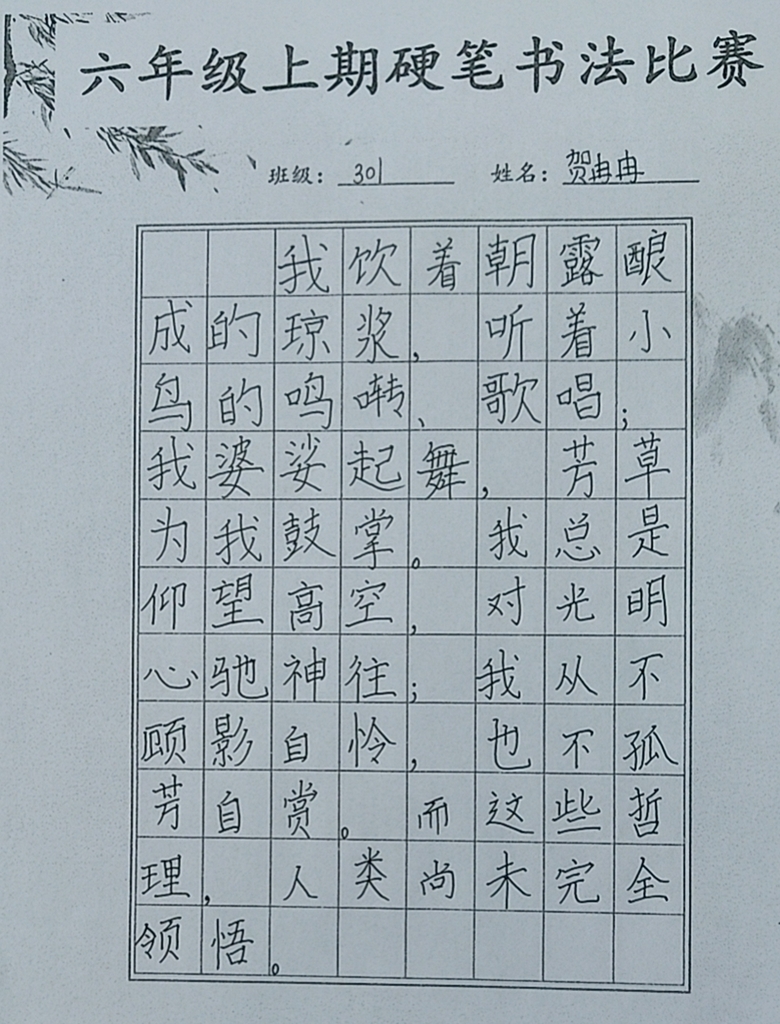 六年级上期硬笔书法比赛
班级：301 姓名：贺冉冉
我饮着朝露酿
成的琼浆，听着小
鸟的鸣啭、歌唱；
我婆娑起舞，芳草
为我鼓掌。我总是
仰望高空，对光明
心驰神往；我从不
顾影自怜，也不孤
芳自赏。而这些哲
理，人类尚未完全
领悟。